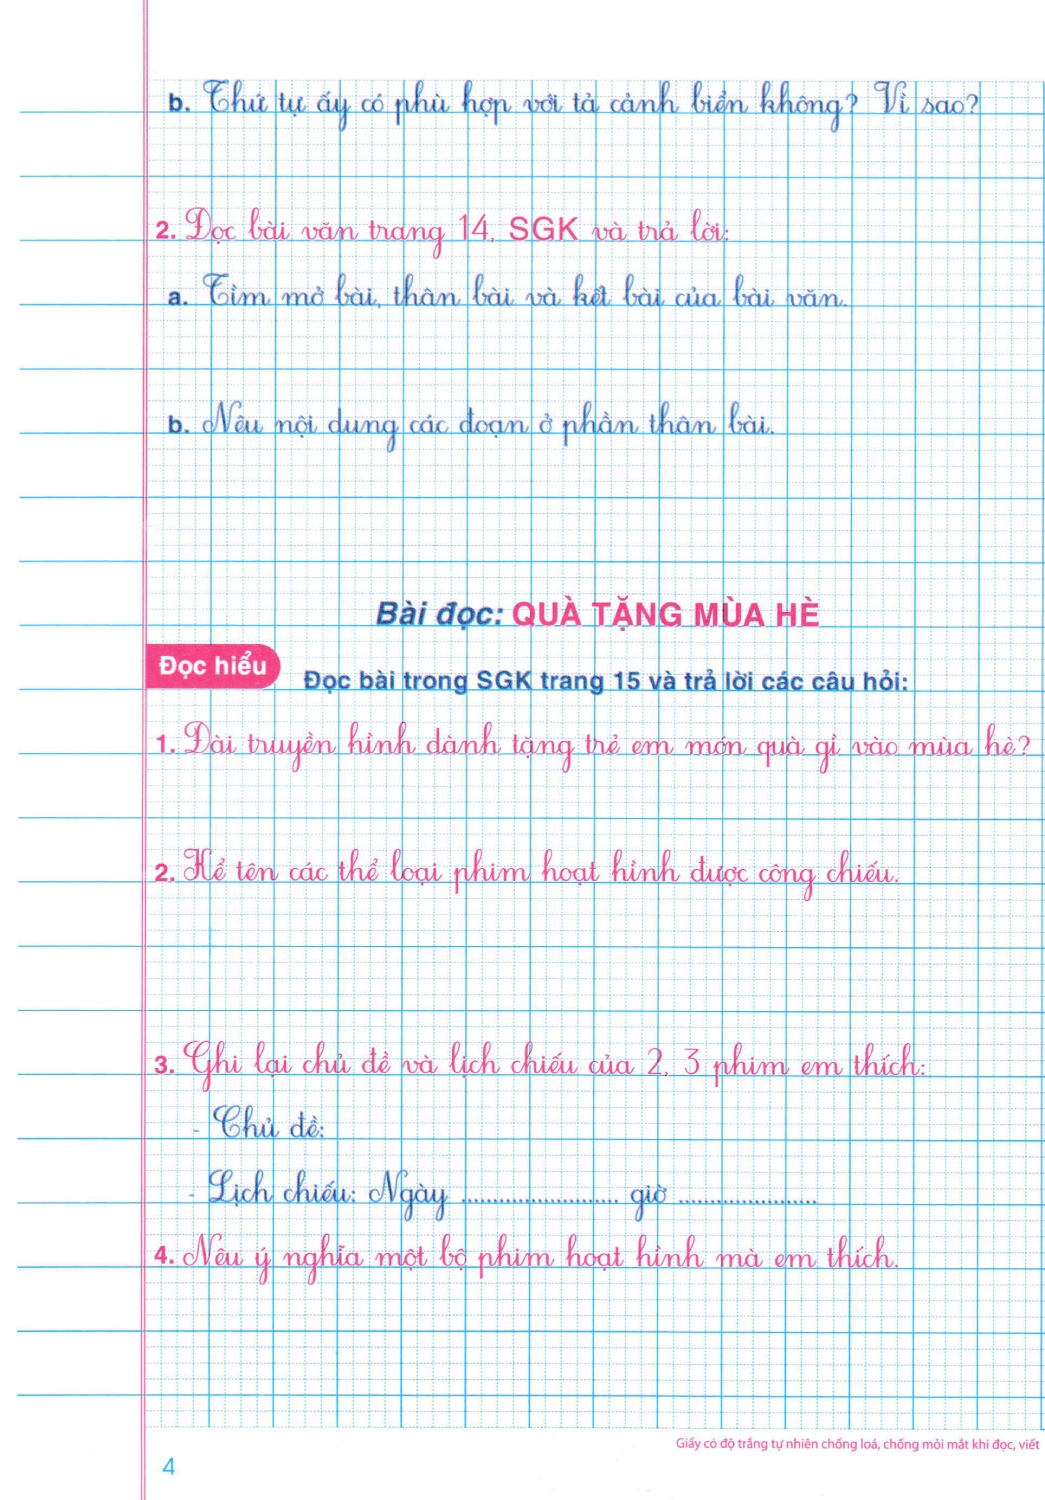 b. Thứ tự ấy có phù hợp với tả cảnh biển không? Vì sao?
2. Đọc bài văn trang 14, SGK và trả lời:
a. Tìm mở bài, thân bài và kết bài của bài văn.
b. Nêu nội dung các đoạn ở phần thân bài.
Bài đọc: QUÀ TẶNG MÙA HÈ
Đọc hiểu
Đọc bài trong SGK trang 15 và trả lời các câu hỏi:
1. Đài truyền hình dành tặng trẻ em món quà gì vào mùa hè?
2. Kể tên các thể loại phim hoạt hình được công chiếu.
3. Ghi lại chủ đề và lịch chiếu của 2, 3 phim em thích:
- Chủ đề:
- Lịch chiếu: Ngày ........................ giờ .....................
4. Nêu ý nghĩa một bộ phim hoạt hình mà em thích.
Giấy có độ trắng tự nhiên chống loá, chống mỏi mắt khi đọc, viết
4